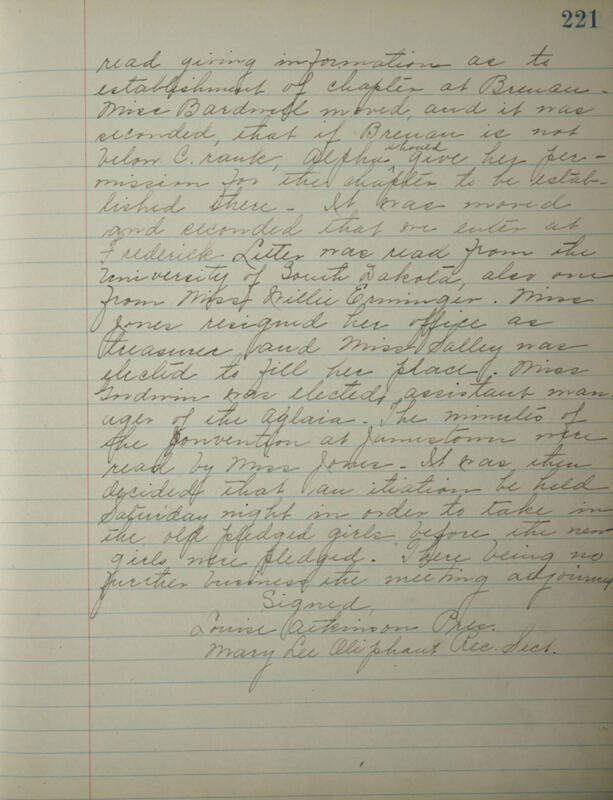 221
read giving information as to
establishment of chapter at Brenau.
Miss Bardwell moved, and it was
seconded, that if Brenau is not
below C. rank, Alpha should give her per-
mission for the chapter to be estab-
lished there. It was moved
and seconded that we enter at
Frederick. Letter was read from the
University of South Dakota, also one
from Miss Willie Erminger. Miss
Jones resigned her office as
treasurer and Miss Salley was
elected to fill her place. Miss
Goodwin was elected assistant man-
ager of the Aglaia. The minutes of
the Convention at Jamestown were
read by Miss Jones. It was then
decided that an itiation be held
Saturday night in order to take in
the old pledged girls before the new
girls were pledged. There being no
further business the meeting adjourned
Signed,
Louise Atkinson Pres.
Mary Lee Oliphant Rec. Sect.